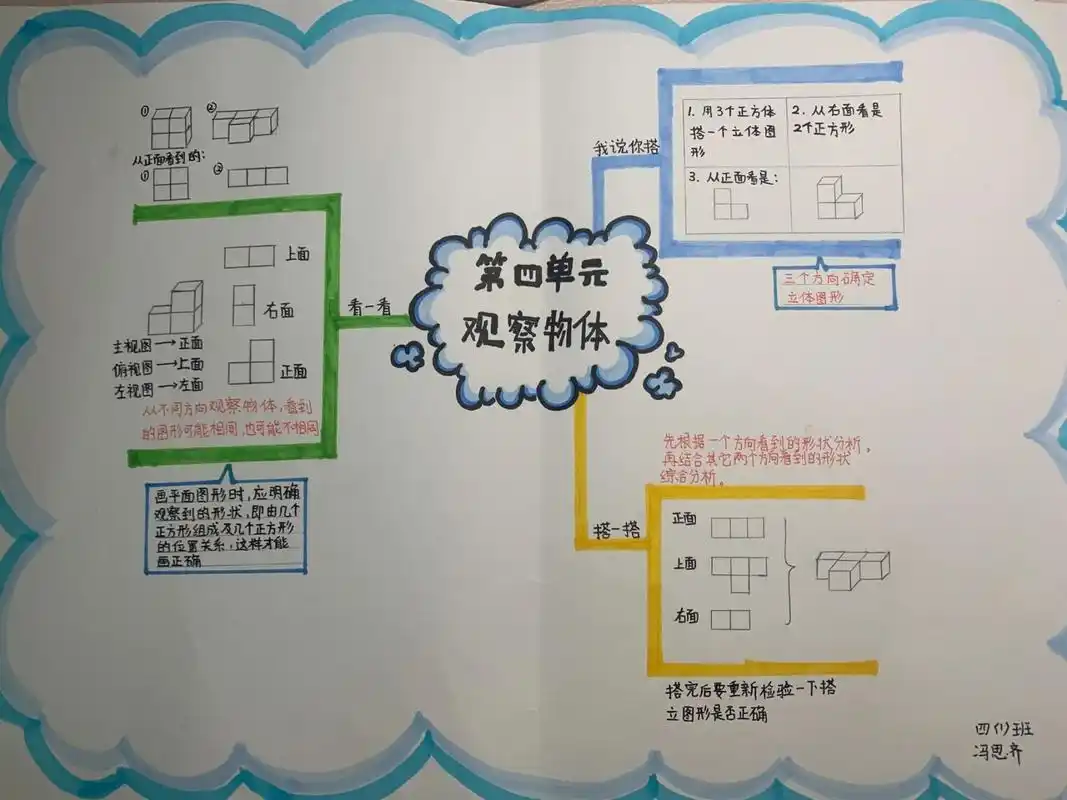 第四单元
观察物体
看一看
① ②
从正面看到的：
① ②
上面
右面
正面
主视图→正面
俯视图→上面
左视图→左面
从不同方向观察物体，看到
的图形可能相同，也可能不相同
画平面图形时，应明确
观察到的形状，即由几个
正方形组成及几个正方形
的位置关系，这样才能
画正确
我说你搭
1. 用3个正方体
搭一个立体图
形
2. 从右面看是
2个正方形
3. 从正面看是：
三个方向确定
立体图形
搭一搭
先根据一个方向看到的形状分析，
再结合其它两个方向看到的形状
综合分析。
正面
上面
右面
搭完后要重新检验一下搭
立图形是否正确
四(1)班
冯思齐